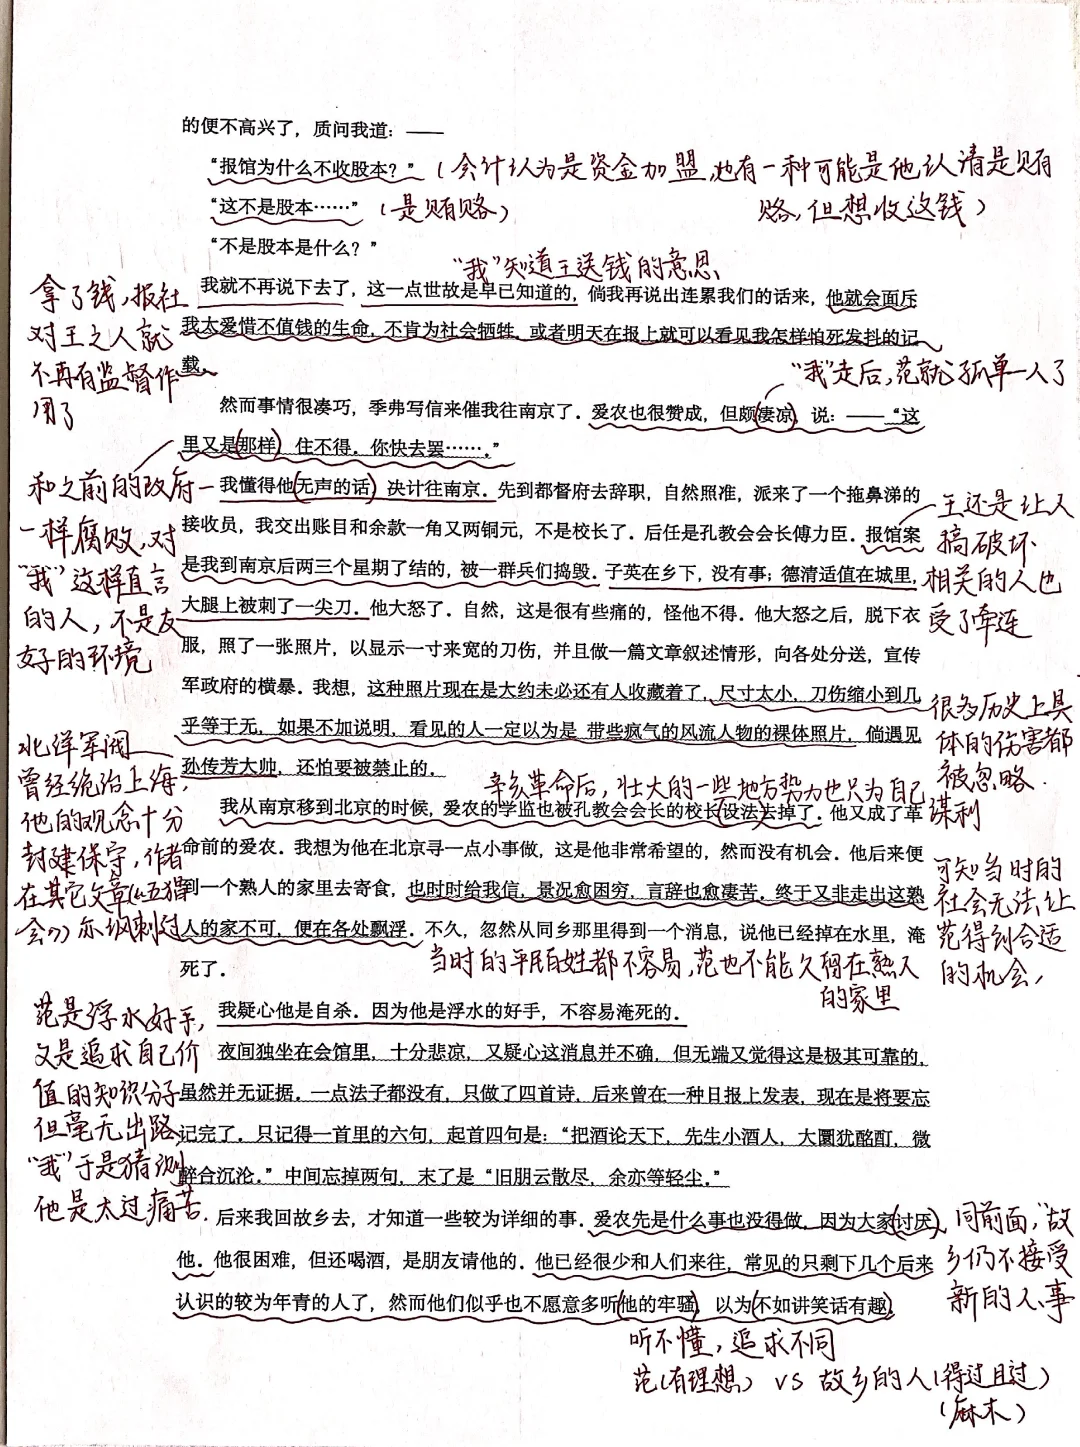 的便不高兴了，质问我道：——
“报馆为什么不收股本？”（会计认为是资金加盟，也有一种可能是他认清是贿
“这不是股本……”（是贿赂）
赂，但想收这钱）
“不是股本是什么？”
“我”知道王送钱的意思
我就不再说下去了，这一点世故是早已知道的，倘我再说出连累我们的话来，他就会面斥
我太爱惜不值钱的生命，不肯为社会牺牲，或者明天在报上就可以看见我怎样怕死发抖的记
载。
拿了钱，报社
对王之人就
不再有监督作
用了
“我”走后，范就孤单一人了
然而事情很凑巧，季弗写信来催我往南京了．爱农也很赞成，但颇凄凉，说：——“这
里又是那样，住不得．你快去罢……．”
和之前的政府一
一样腐败，对
“我”这样直言
的人，不是友
好的环境
我懂得他无声的话，决计往南京．先到都督府去辞职，自然照准，派来了一个拖鼻涕的
接收员，我交出账目和余款一角又两铜元，不是校长了．后任是孔教会会长傅力臣．报馆案
是我到南京后两三个星期了结的，被一群兵们捣毁．子英在乡下，没有事；德清适值在城里，
大腿上被刺了一尖刀．他大怒了．自然，这是很有些痛的，怪他不得．他大怒之后，脱下衣
服，照了一张照片，以显示一寸来宽的刀伤，并且做一篇文章叙述情形，向各处分送，宣传
军政府的横暴．我想，这种照片现在是大约未必还有人收藏着了，尺寸太小，刀伤缩小到几
乎等于无，如果不加说明，看见的人一定以为是 带些疯气的风流人物的裸体照片，倘遇见
孙传芳大帅，还怕要被禁止的．
王还是让人
搞破坏
相关的人也
受了牵连
很多历史上具
体的伤害都
被忽略．
北洋军阀
曾经统治上海，
他的观念十分
封建保守，作者
在其它文章（《五猖
会》）亦讽刺过
辛亥革命后，壮大的一些地方势力也只为自己
谋利
我从南京移到北京的时候，爱农的学监也被孔教会会长的校长设法去掉了．他又成了革
命前的爱农．我想为他在北京寻一点小事做，这是他非常希望的，然而没有机会．他后来便
到一个熟人的家里去寄食，也时时给我信，景况愈困穷，言辞也愈凄苦．终于又非走出这熟
人的家不可，便在各处飘浮．不久，忽然从同乡那里得到一个消息，说他已经掉在水里，淹
死了．
可知当时的
社会无法让
范得到合适
的机会，
当时的平民百姓都不容易，范也不能久留在熟人
的家里
我疑心他是自杀．因为他是浮水的好手，不容易淹死的．
夜间独坐在会馆里，十分悲凉，又疑心这消息并不确，但无端又觉得这是极其可靠的，
虽然并无证据．一点法子都没有，只做了四首诗，后来曾在一种日报上发表，现在是将要忘
记完了．只记得一首里的六句，起首四句是：“把酒论天下，先生小酒人，大圜犹酩酊，微
醉合沉沦．”中间忘掉两句，末了是“旧朋云散尽，余亦等轻尘．”
范是浮水好手，
又是追求自己价
值的知识分子
但毫无出路，
“我”于是猜测
他是太过痛苦．
后来我回故乡去，才知道一些较为详细的事．爱农先是什么事也没得做，因为大家讨厌
他．他很困难，但还喝酒，是朋友请他的．他已经很少和人们来往，常见的只剩下几个后来
认识的较为年青的人了，然而他们似乎也不愿意多听他的牢骚，以为不如讲笑话有趣．
同前面，“故
乡仍不接受
新的人、事
听不懂，追求不同
范（有理想） vs 故乡的人（得过且过）
（麻木）